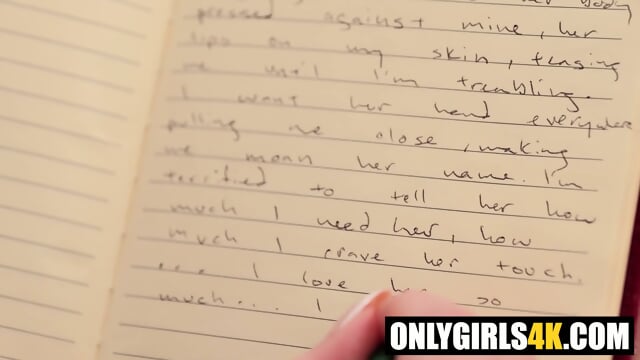 her body
pressed against mine, her
lips on my skin, teasing
me until I'm trembling.
I want her hand everywhere
pulling me close, making
me moan her name. I'm
terrified to tell her how
much I need her, how
much I crave her touch.
... I love her so
much... I
ONLYGIRLS4K.COM